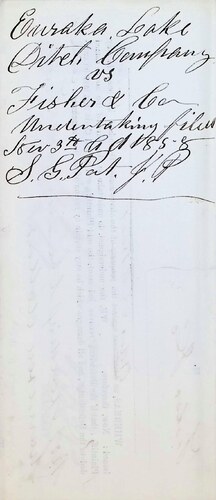 Euraka, Lake
Ditch Company
vs
Fisher & Co
Undertaking filed
Nov 3rd A D 1858
S. G. Pat. J. P